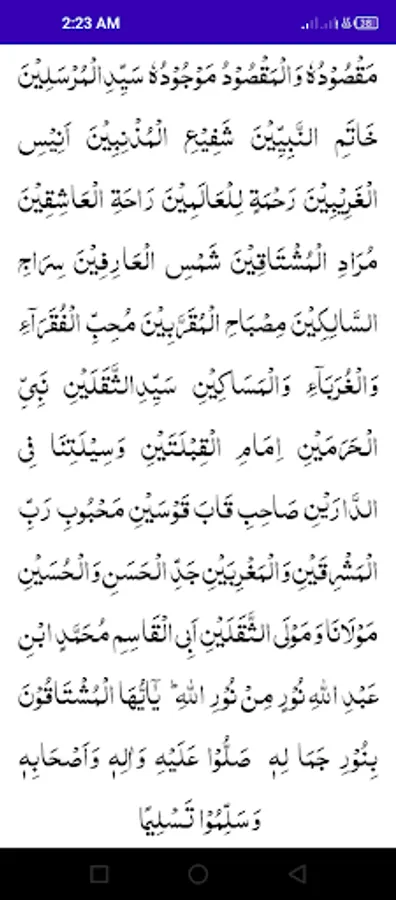 2:23 AM
38
مَقْصُوْدُهٗ وَالْمَقْصُوْدُ مَوْجُوْدُهٗ سَيِّدِ الْمُرْسَلِيْنَ
خَاتَمِ النَّبِيِّيْنَ شَفِيْعِ الْمُذْنِبِيْنَ اَنِيْسِ
الْغَرِيْبِيْنَ رَحْمَةٍ لِلْعَالَمِيْنَ رَاحَةِ الْعَاشِقِيْنَ
مُرَادِ الْمُشْتَاقِيْنَ شَمْسِ الْعَارِفِيْنَ سِرَاجِ
السَّالِكِيْنَ مِصْبَاحِ الْمُقَرَّبِيْنَ مُحِبِّ الْفُقَرَآءِ
وَالْغُرَبَآءِ وَالْمَسَاكِيْنِ سَيِّدِ الثَّقَلَيْنِ نَبِيِّ
الْحَرَمَيْنِ اِمَامِ الْقِبْلَتَيْنِ وَسِيْلَتِنَا فِى
الدَّارَيْنِ صَاحِبِ قَابَ قَوْسَيْنِ مَحْبُوْبِ رَبِّ
الْمَشْرِقَيْنِ وَالْمَغْرِبَيْنِ جَدِّ الْحَسَنِ وَالْحُسَيْنِ
مَوْلَانَا وَمَوْلَى الثَّقَلَيْنِ اَبِى الْقَاسِمِ مُحَمَّدِ ابْنِ
عَبْدِ اللهِ نُوْرٍ مِنْ نُوْرِ اللهِ ؕ يَآ اَيُّهَا الْمُشْتَاقُوْنَ
بِنُوْرِ جَمَا لِهٖ صَلُّوْا عَلَيْهِ وَاٰلِهٖ وَاَصْحَابِهٖ
وَسَلِّمُوْا تَسْلِيْمًا